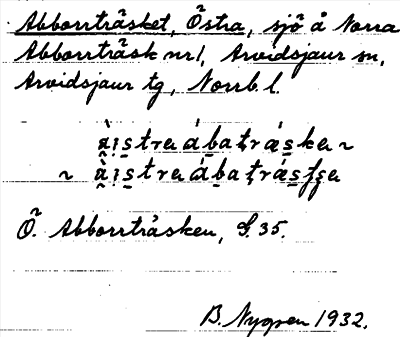 Abborrträsket, Östra, sjö å Norra
Abborrträsk nr 1, Arvidsjaur sn,
Arvidsjaur tg, Norrb. l.
Ö. Abborrträsken, G. 35.
B. Nygren 1932.